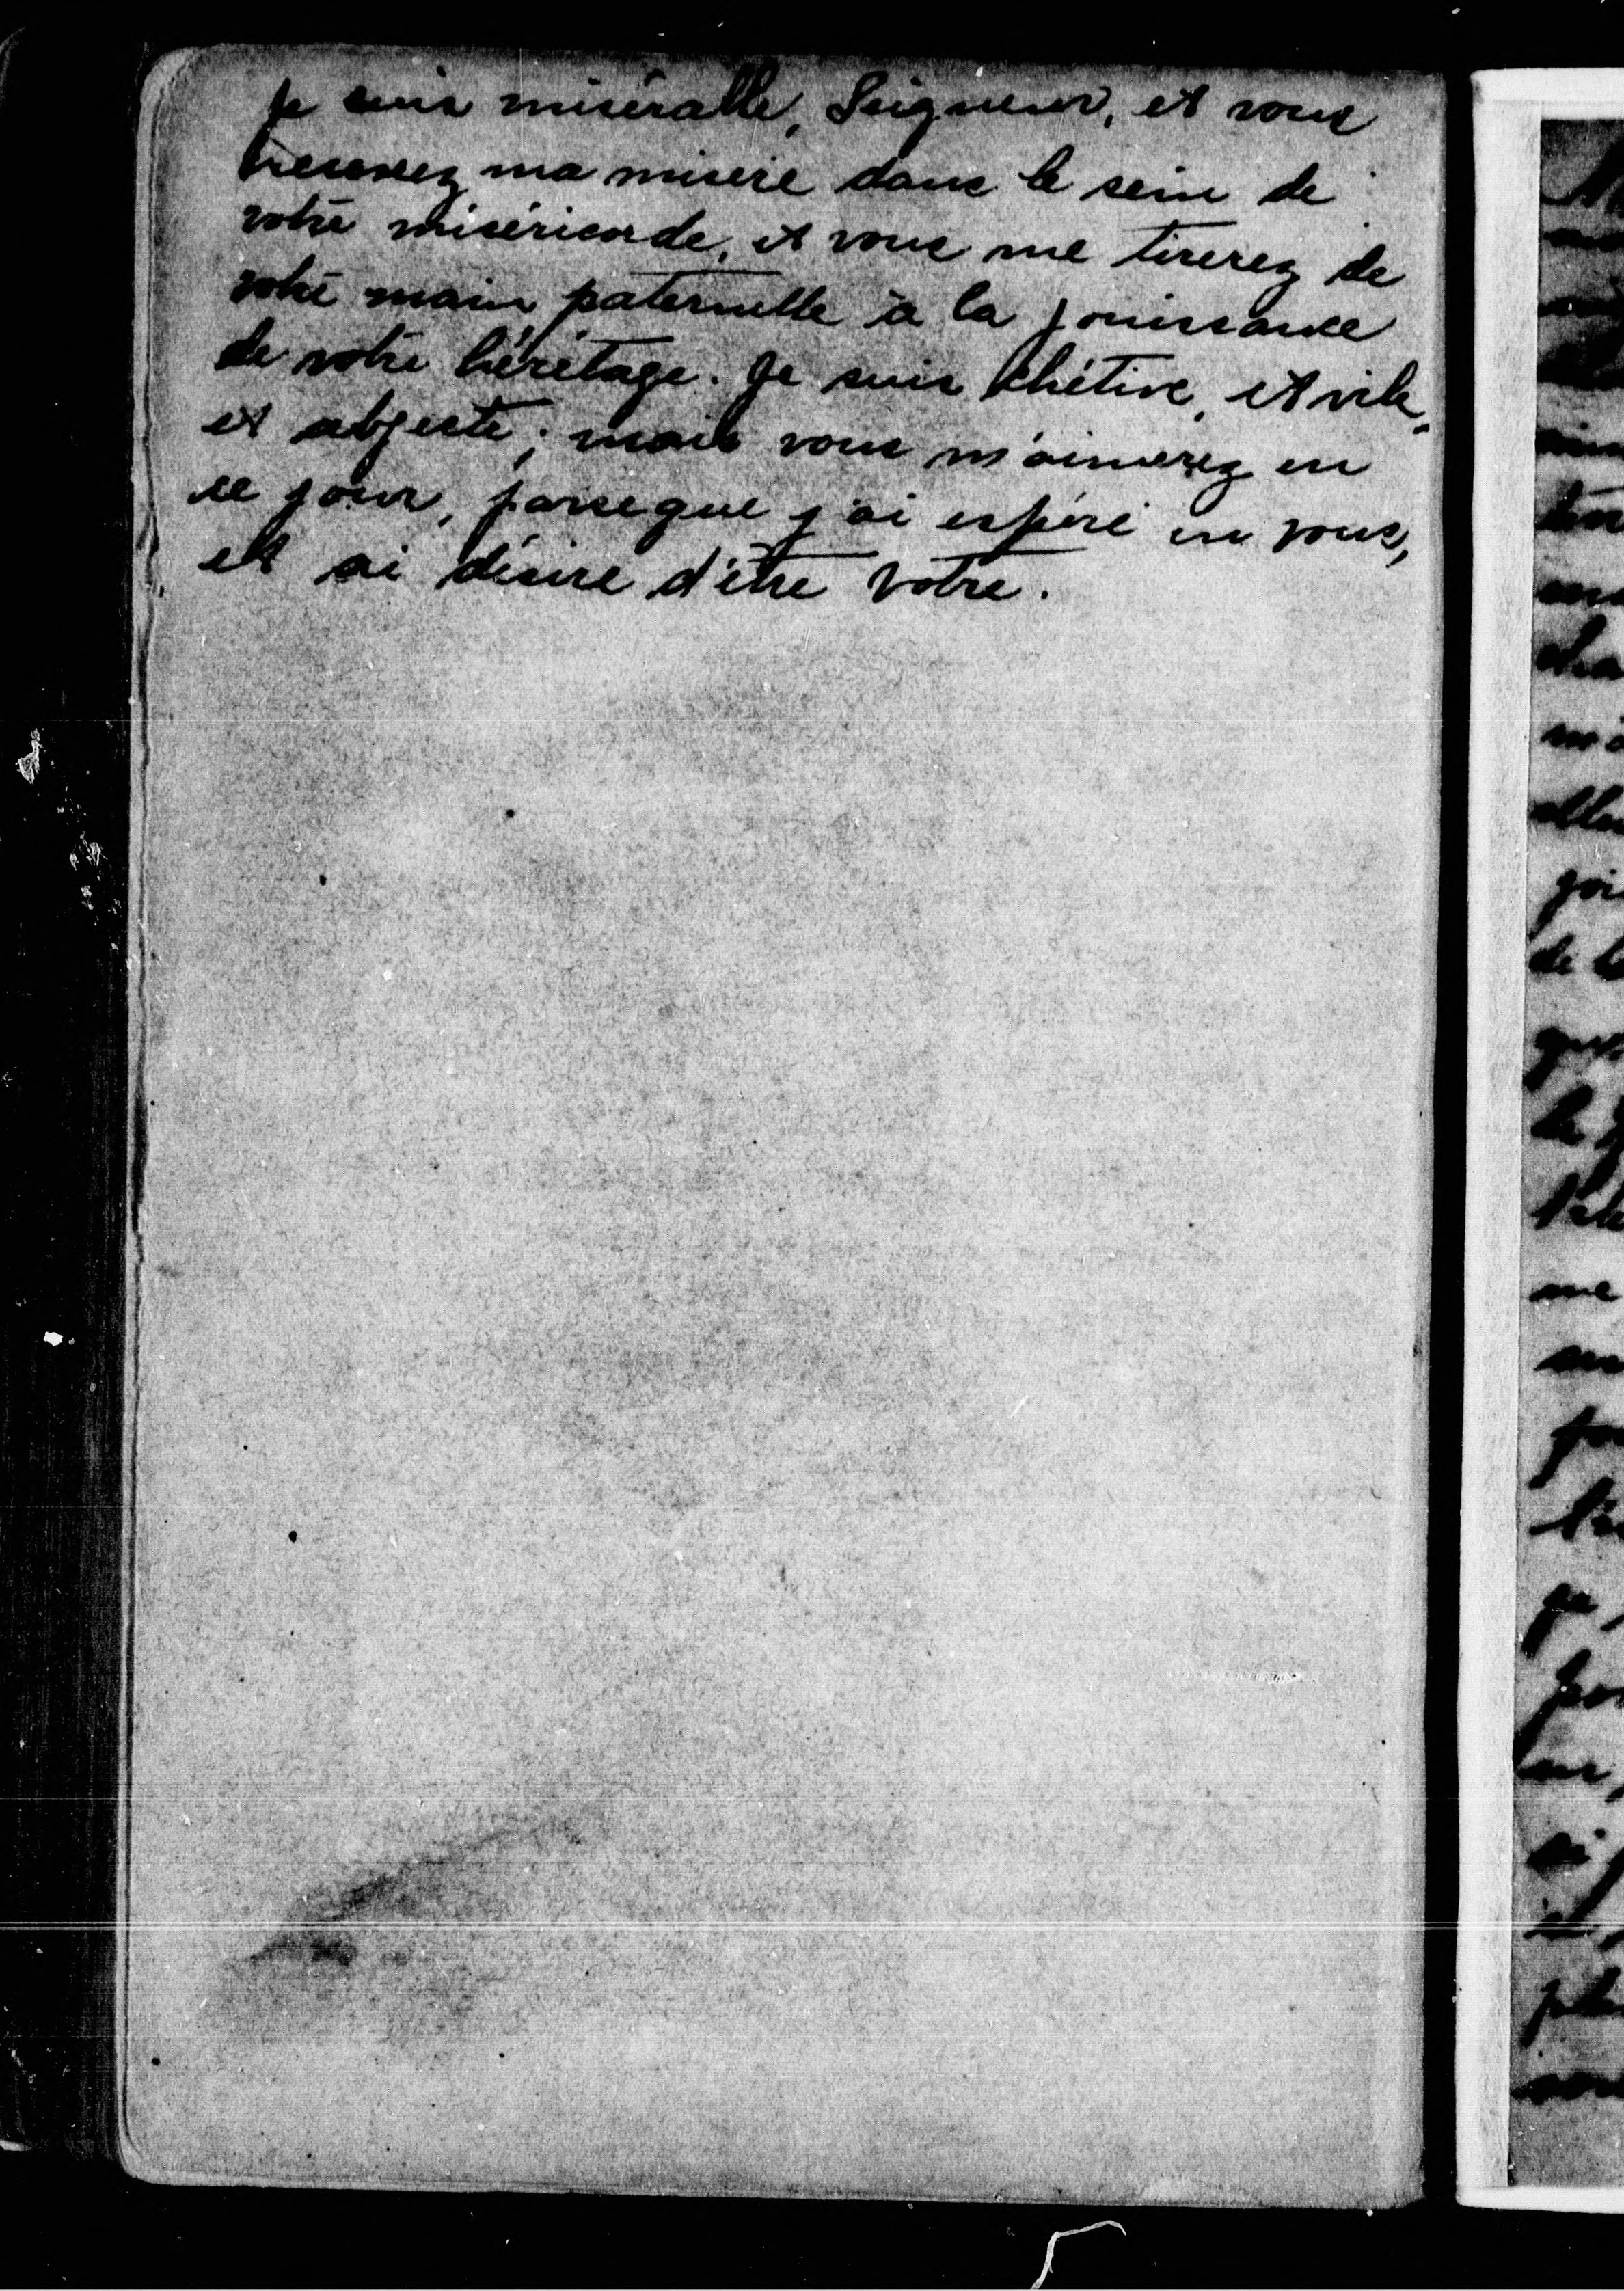 Je suis misérable, Seigneur, et vous
recevrez ma misère dans le sein de
votre miséricorde, et vous me tirerez de
votre main paternelle à la jouissance
de votre héritage. Je suis chétive, et vile,
et abjecte; mais vous m'aimerez en
ce jour, parceque j'ai espéré en vous,
et ai désiré d'être votre.